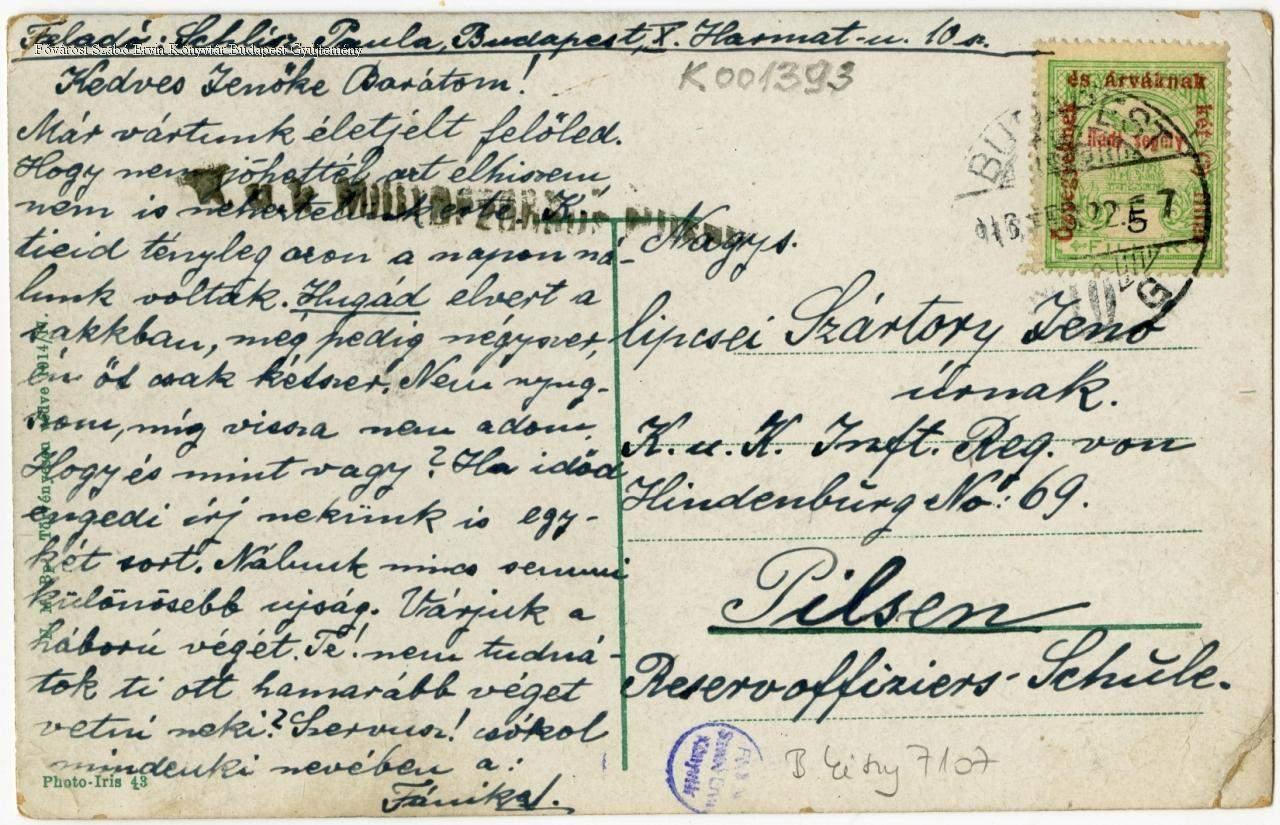 Feladó: Schlisz Paula, Budapest, X. Harmat-u. 10 sz.
Fővárosi Szabó Ervin Könyvtár Budapest Gyűjtemény
K001393
Kedves Jenőke Barátom!
Már vártunk életjélt felőled.
Hogy nem jöhettél azt elhiszem
nem is nehertelünk érte. K
ticid tényleg azon a napon ná-
lunk voltak. Hugád elvert a
sakkban, még pedig négyszer,
én őt csak kétszer. Nem nyug-
szom, míg vissza nem adom.
Hogy és mint vagy? Ha időd
engedi írj nekünk is egy-
két sort. Nálunk nincs semmi
különösebb ujság. Várjuk a
háború végét. Te! nem tudná-
tok ti ott hamarább véget
vetni neki? Szervusz! csókol
mindenki nevében a:
Fánika
Photo-Iris 43
és árváknak
Özvegyeknek
két
Hadi segély
BUDAPEST
22
5
7
G
Nagys.
lipcsei Szártory Jenő
úrnak.
K. u. K. Inft. Reg. von
Hindenburg No: 69.
Pilsen
Reservoffiziers-Schule.
Szabó Ervin
Könyvtár
7107